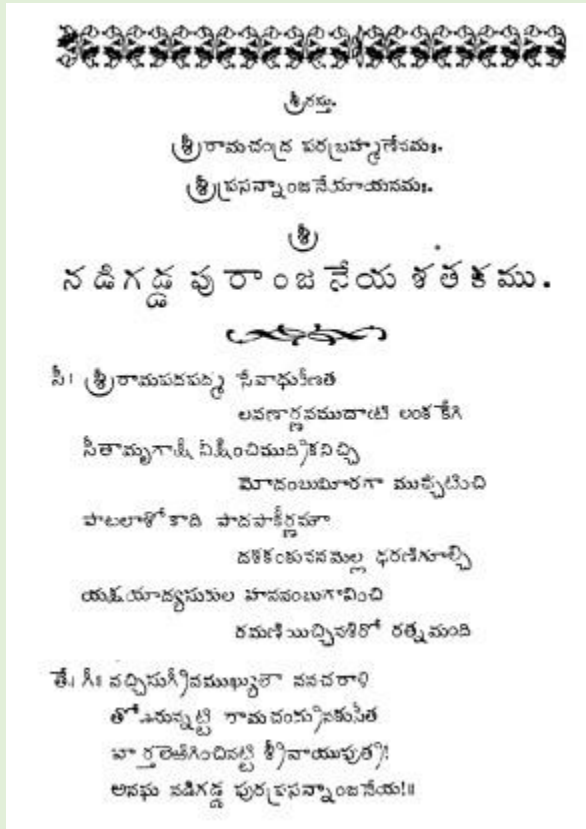 శ్రీరస్తు.
శ్రీరామచంద్ర పరబ్రహ్మణేనమః.
శ్రీప్రసన్నాంజనేయాయనమః.
శ్రీ
నడిగడ్డ పురాంజనేయ శతకము.
సీ। శ్రీరామపదపద్మ సేవాధురీణత
లవణార్ణవముదాఁటి లంక కేగి
సీతామృగాక్షీ వీక్షించిముద్రికనిచ్చి
మోదంబుమీరఁగా ముచ్చటించి
పాటలాశోకాది పాదపాకీర్ణమౌ
దశకంఠువనమెల్ల ధరణిఁగూల్చి
యక్షయాద్యసురుల హననంబుగావించి
రమణి యిచ్చినశిరో రత్నమంది
తే। గీ॥ వచ్చిసుగ్రీవముఖ్యులౌ వనచరాళి
తోఁదనున్నట్టి రామచంద్రునకుసీత
వార్తలెఱిఁగించినట్టి శ్రీవాయుపుత్ర!
అనఘ నడిగడ్డ పురప్రసన్నాంజనేయ!॥